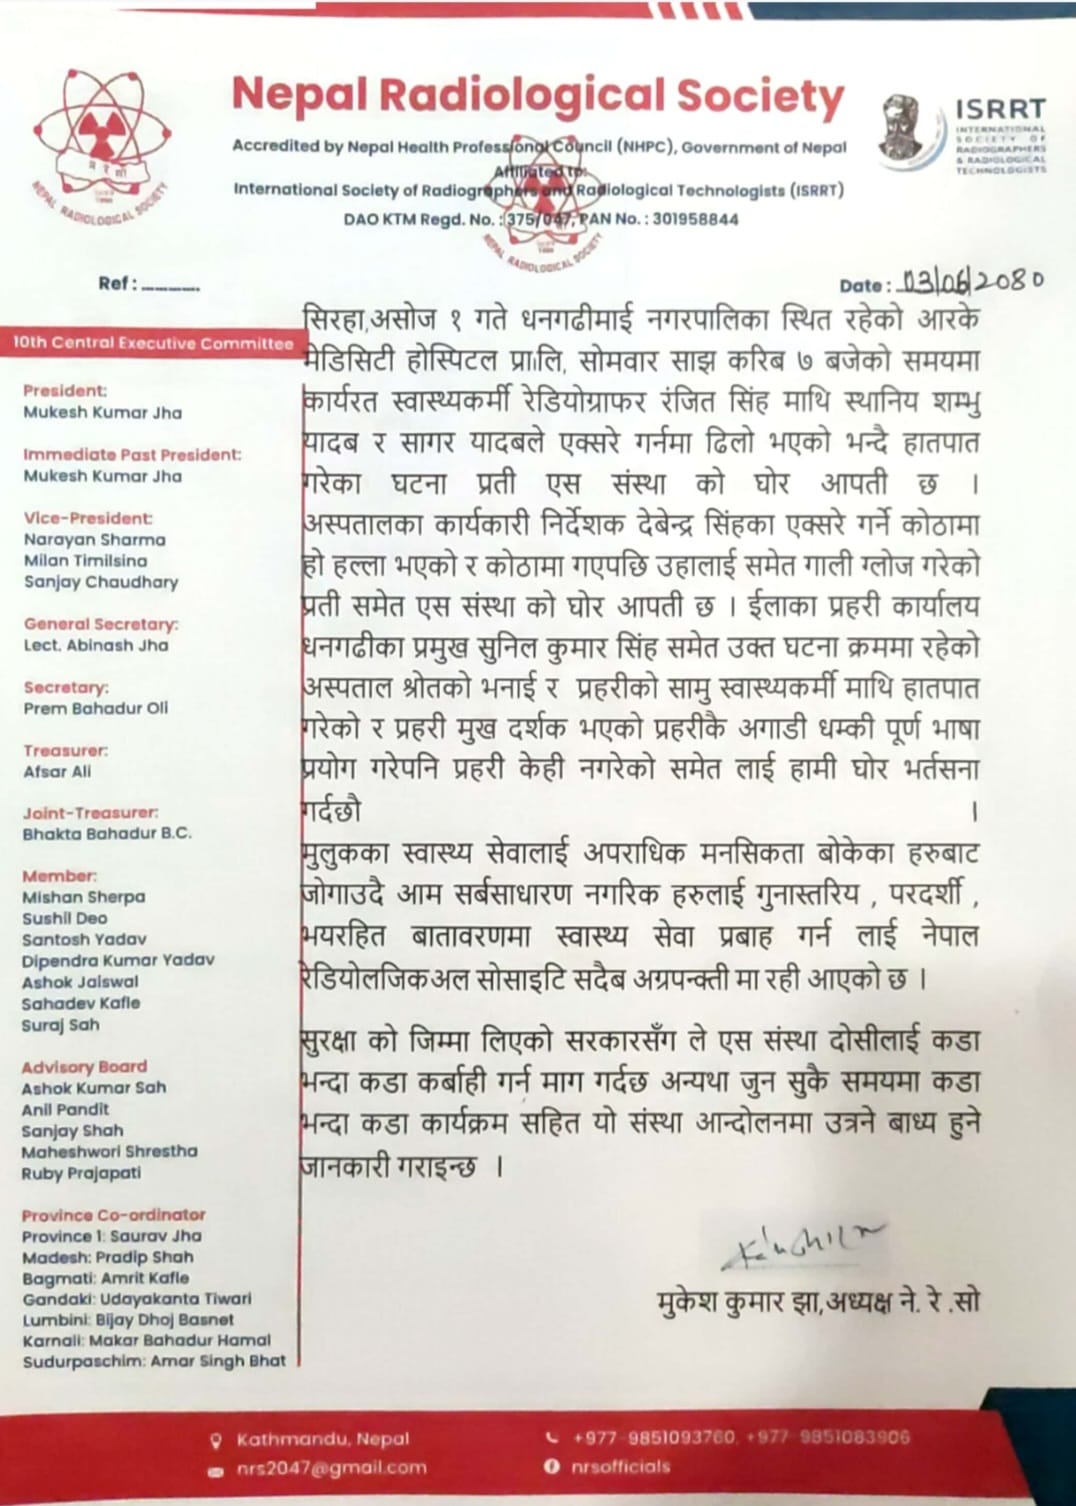 Nepal Radiological Society
Accredited by Nepal Health Professional Council (NHPC), Government of Nepal
Affiliated to:
International Society of Radiographers and Radiological Technologists (ISRRT)
DAO KTM Regd. No. : 375/047, PAN No. : 301958844
ने रे सो
NEPAL RADIOLOGICAL SOCIETY
NEPAL RADIOLOGICAL SOCIETY
ISRRT
INTERNATIONAL
SOCIETY OF
RADIOGRAPHERS
& RADIOLOGICAL
TECHNOLOGISTS
Ref :
Date : 03/06/2080
10th Central Executive Committee
President:
Mukesh Kumar Jha
Immediate Past President:
Mukesh Kumar Jha
Vice-President:
Narayan Sharma
Milan Timilsina
Sanjay Chaudhary
General Secretary:
Lect. Abinash Jha
Secretary:
Prem Bahadur Oli
Treasurer:
Afsar Ali
Joint-Treasurer:
Bhakta Bahadur B.C.
Member:
Mishan Sherpa
Sushil Deo
Santosh Yadav
Dipendra Kumar Yadav
Ashok Jaiswal
Sahadev Kafle
Suraj Sah
Advisory Board
Ashok Kumar Sah
Anil Pandit
Sanjay Shah
Maheshwori Shrestha
Ruby Prajapati
Province Co-ordinator
Province 1: Saurav Jha
Madesh: Pradip Shah
Bagmati: Amrit Kafle
Gandaki: Udayakanta Tiwari
Lumbini: Bijay Dhoj Basnet
Karnali: Makar Bahadur Hamal
Sudurpaschim: Amar Singh Bhat
सिरहा,असोज १ गते धनगढीमाई नगरपालिका स्थित रहेको आरके
मेडिसिटी होस्पिटल प्रा।लि, सोमवार साझ करिब ७ बजेको समयमा
कार्यरत स्वास्थ्यकर्मी रेडियोग्राफर रंजित सिंह माथि स्थानिय शम्भु
यादब र सागर यादबले एक्सरे गर्नमा ढिलो भएको भन्दै हातपात
गरेका घटना प्रती एस संस्था को घोर आपती छ ।
अस्पतालका कार्यकारी निर्देशक देबेन्द्र सिंहका एक्सरे गर्ने कोठामा
हो हल्ला भएको र कोठामा गएपछि उहालाई समेत गाली ग्लोज गरेको
प्रती समेत एस संस्था को घोर आपती छ । ईलाका प्रहरी कार्यालय
धनगढीका प्रमुख सुनिल कुमार सिंह समेत उक्त घटना क्रममा रहेको
अस्पताल श्रोतको भनाई र प्रहरीको सामु स्वास्थ्यकर्मी माथि हातपात
गरेको र प्रहरी मुख दर्शक भएको प्रहरीकै अगाडी धम्की पूर्ण भाषा
प्रयोग गरेपनि प्रहरी केही नगरेको समेत लाई हामी घोर भर्तसना
गर्दछौ ।
मुलुकका स्वास्थ्य सेवालाई अपराधिक मनसिकता बोकेका हरुबाट
जोगाउदै आम सर्बसाधारण नगरिक हरुलाई गुनास्तरिय , परदर्शी ,
भयरहित बातावरणमा स्वास्थ्य सेवा प्रबाह गर्न लाई नेपाल
रेडियोलजिकअल सोसाइटि सदैब अग्रपन्क्ती मा रही आएको छ ।
सुरक्षा को जिम्मा लिएको सरकारसँग ले एस संस्था दोसीलाई कडा
भन्दा कडा कर्बाही गर्न माग गर्दछ अन्यथा जुन सुकै समयमा कडा
भन्दा कडा कार्यक्रम सहित यो संस्था आन्दोलनमा उत्रने बाध्य हुने
जानकारी गराइन्छ ।
मुकेश कुमार झा,अध्यक्ष ने. रे .सो
Kathmandu, Nepal
nrs2047@gmail.com
+977-9851093760, +977-9851083906
nrsofficials